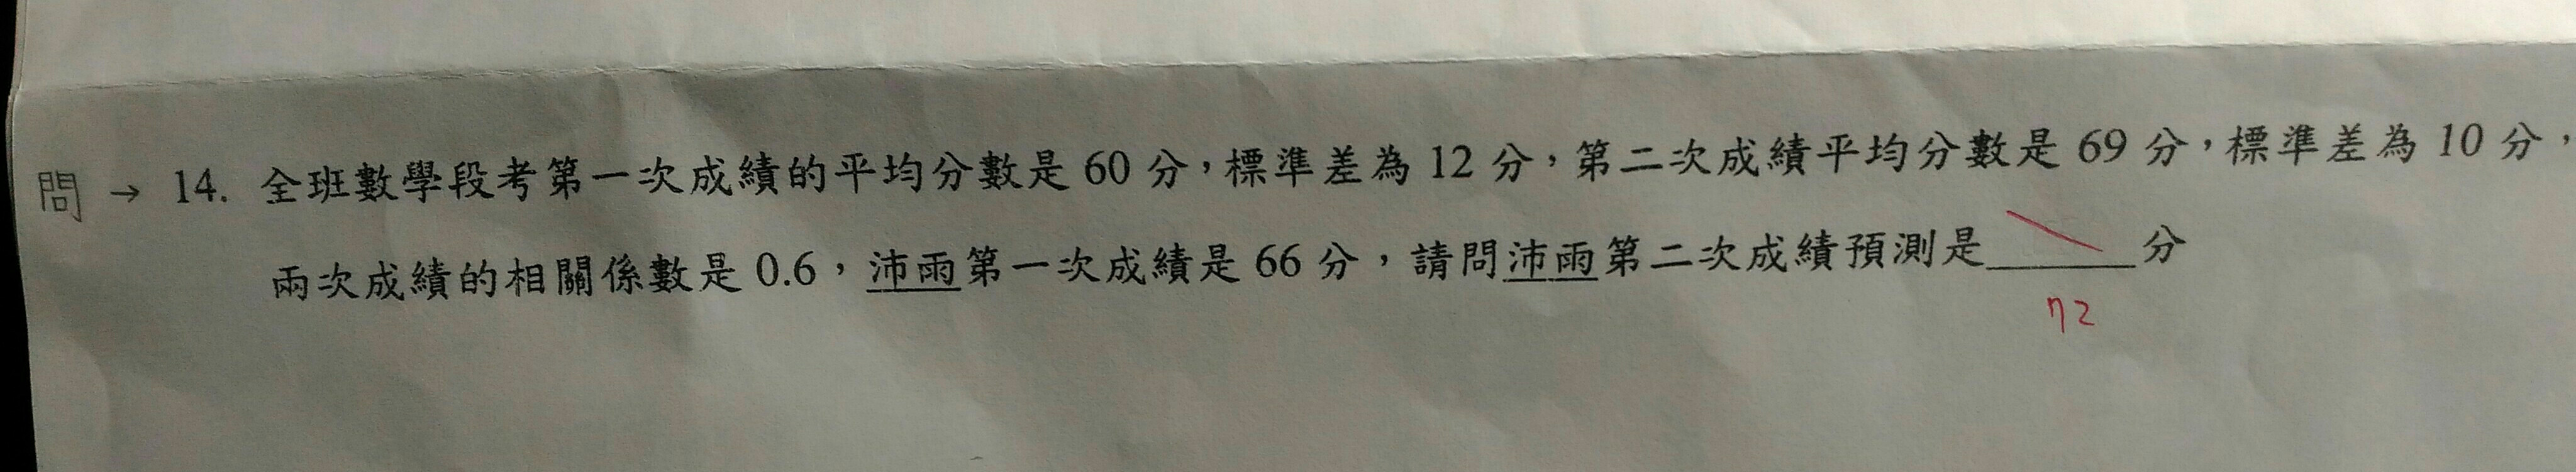 問 → 14. 全班數學段考第一次成績的平均分數是 60 分，標準差為 12 分，第二次成績平均分數是 69 分，標準差為 10 分，
兩次成績的相關係數是 0.6，沛雨第一次成績是 66 分，請問沛雨第二次成績預測是______分
72